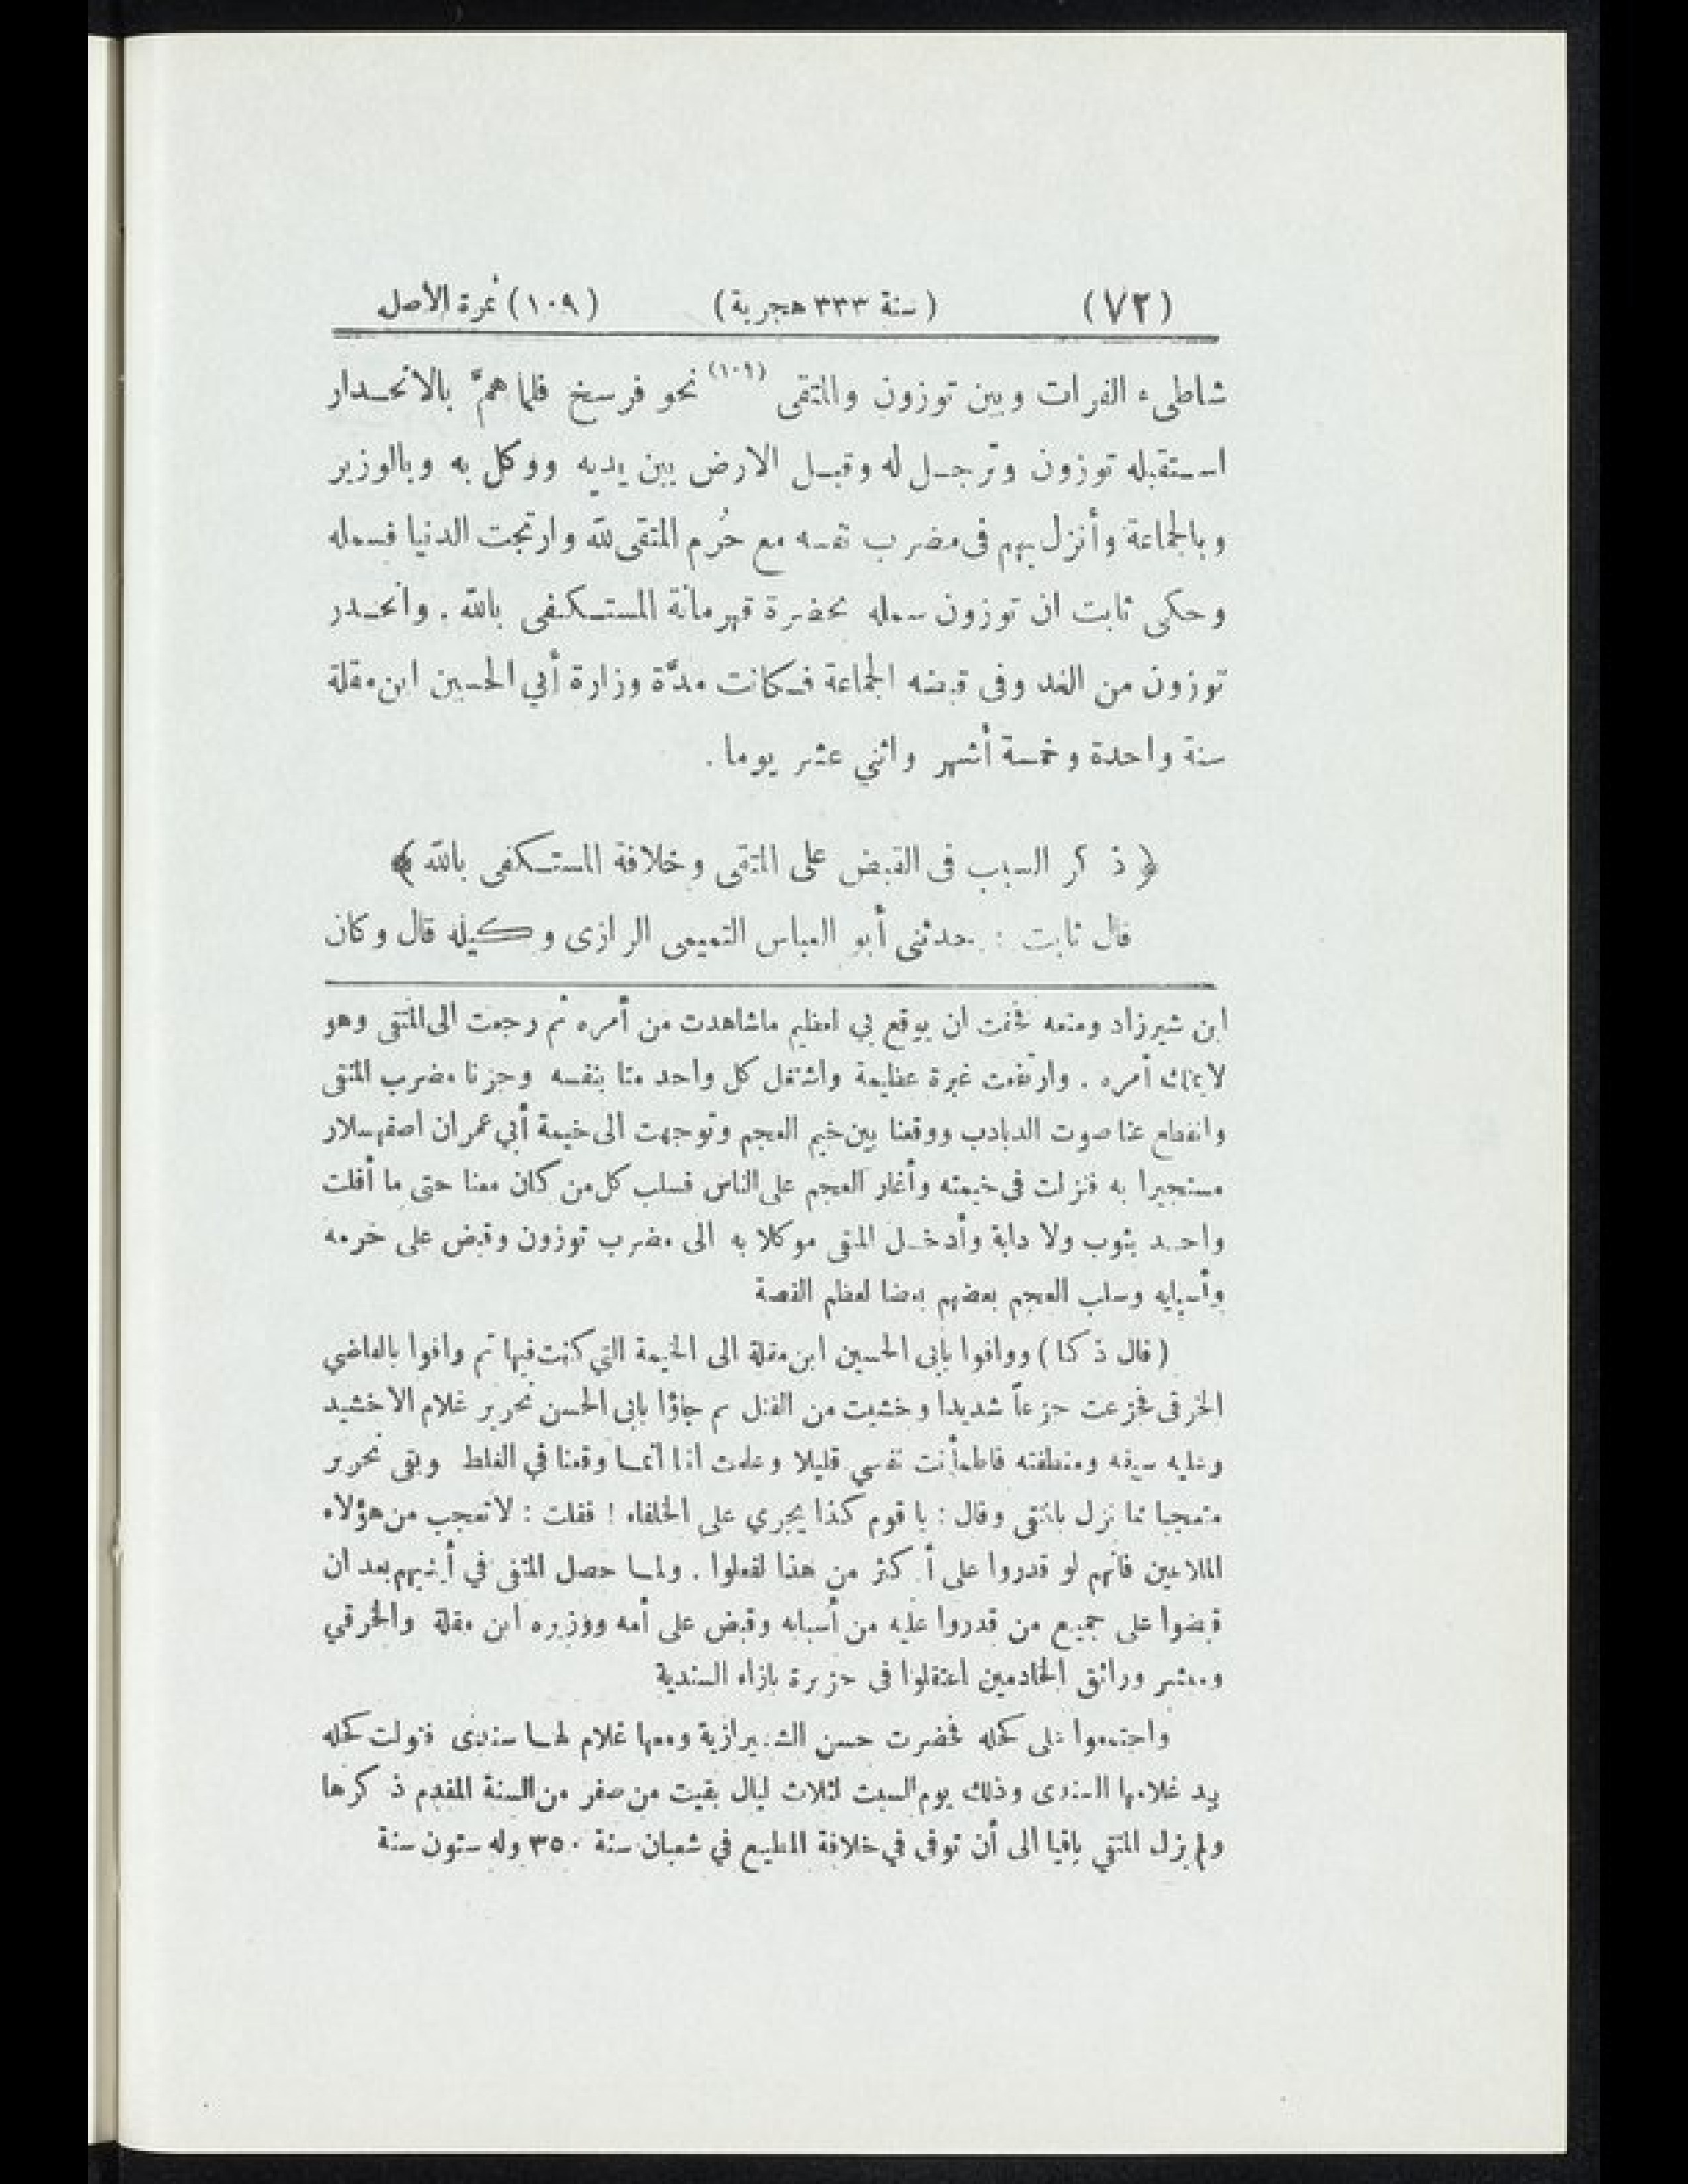 (٧٢) (سنة ٣٣٣ هجرية) (١٠٩) نمرة الأصل
شاطىء الفرات وبين توزون والمتقى (١٠٩) نحو فرسخ فلما همَّ بالانحدار
استقبله توزون وترجل له وقبل الارض بين يديه ووكل به وبالوزير
وبالجماعة وأنزل بهم فى مضرب نفسه مع حُرم المتقى لله وارتجت الدنيا فسمله
وحكى ثابت ان توزون سمله بحضرة قهرمانة المستكفى بالله . وانحدر
توزون من الغد وفى قبضه الجماعة فكانت مدَّة وزارة أبي الحسين ابن مقلة
سنة واحدة وخمسة أشهر واثني عشر يوما .
﴿ ذكر السبب فى القبض على المتقى وخلافة المستكفى بالله ﴾
قال ثابت : حدثنى أبو العباس التميمى الرازى وكيله قال وكان
ابن شيرزاد ومنعه فخفت ان يوقع بي لعظيم ماشاهدت من أمره ثم رجعت الى المتقى وهو
لا يملك أمره . وارتفعت غبرة عظيمة واشتغل كل واحد منا بنفسه وحزنا مضرب المتقى
وانقطع عنا صوت الدبادب ووقعنا بين خيم العجم وتوجهت الى خيمة أبي عمران اصفهسلار
مستجيرا به فنزلت فى خيمته وأغار العجم على الناس فسلب كل من كان معنا حتى ما أفلت
واحد بثوب ولا دابة وأدخل المتقى موكلا به الى مضرب توزون وقبض على حرمه
وأسبابه وسلب العجم بعضهم بعضا لعظم القصة
(قال ذكا) ووافوا بأبى الحسين ابن مقلة الى الخيمة التي كنت فيها ثم وافوا بالقاضي
الخرقى فجزعت جزعاً شديدا وخشيت من القتل ثم جاؤا بابى الحسن نحرير غلام الاخشيد
وعليه سيفه ومنطقته فاطمأنت نفسي قليلا وعلمت أنا انما وقعنا في الغلط وبقى نحرير
متعجبا مما نزل بالمتقى وقال : يا قوم كذا يجري على الخلفاء ! فقلت : لا تعجب من هؤلاء
الملاعين فانهم لو قدروا على أكثر من هذا لفعلوا . ولما حصل المتقى في أيديهم بعد ان
قبضوا على جميع من قدروا عليه من أسبابه وقبض على أمه ووزيره ابن مقلة والخرقي
ومبشر ورائق الخادمين اعتقلوا فى جزيرة بازاء السندية
واجتمعوا على كحله فحضرت حسن الشيرازية ومعها غلام لها سندى فتولت كحله
يد غلامها السندى وذلك يوم السبت لثلاث ليال بقيت من صفر من السنة المقدم ذكرها
ولم يزل المتقي باقيا الى أن توفى في خلافة المطيع في شعبان سنة ٣٥٠ وله ستون سنة